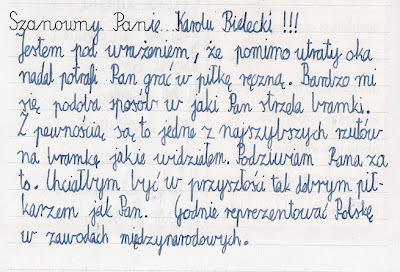 Szanowny Panie Karolu Bielecki !!!
Jestem pod wrażeniem, że pomimo utraty oka
nadal potrafi Pan grać w piłkę ręczną. Bardzo mi
się podoba sposób w jaki Pan strzela bramki.
Z pewnością są to jedne z najszybszych rzutów
na bramkę jakie widziałem. Podziwiam Pana za
to. Chciałbym być w przyszłości tak dobrym pił-
karzem jak Pan. Godnie reprezentować Polskę
w zawodach międzynarodowych.